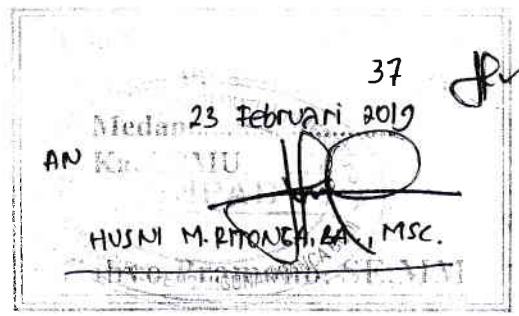 37
Medan 23 Februari 2019
AN
HUSNI M. RITONGA, BA., MSC.
SE.,MM